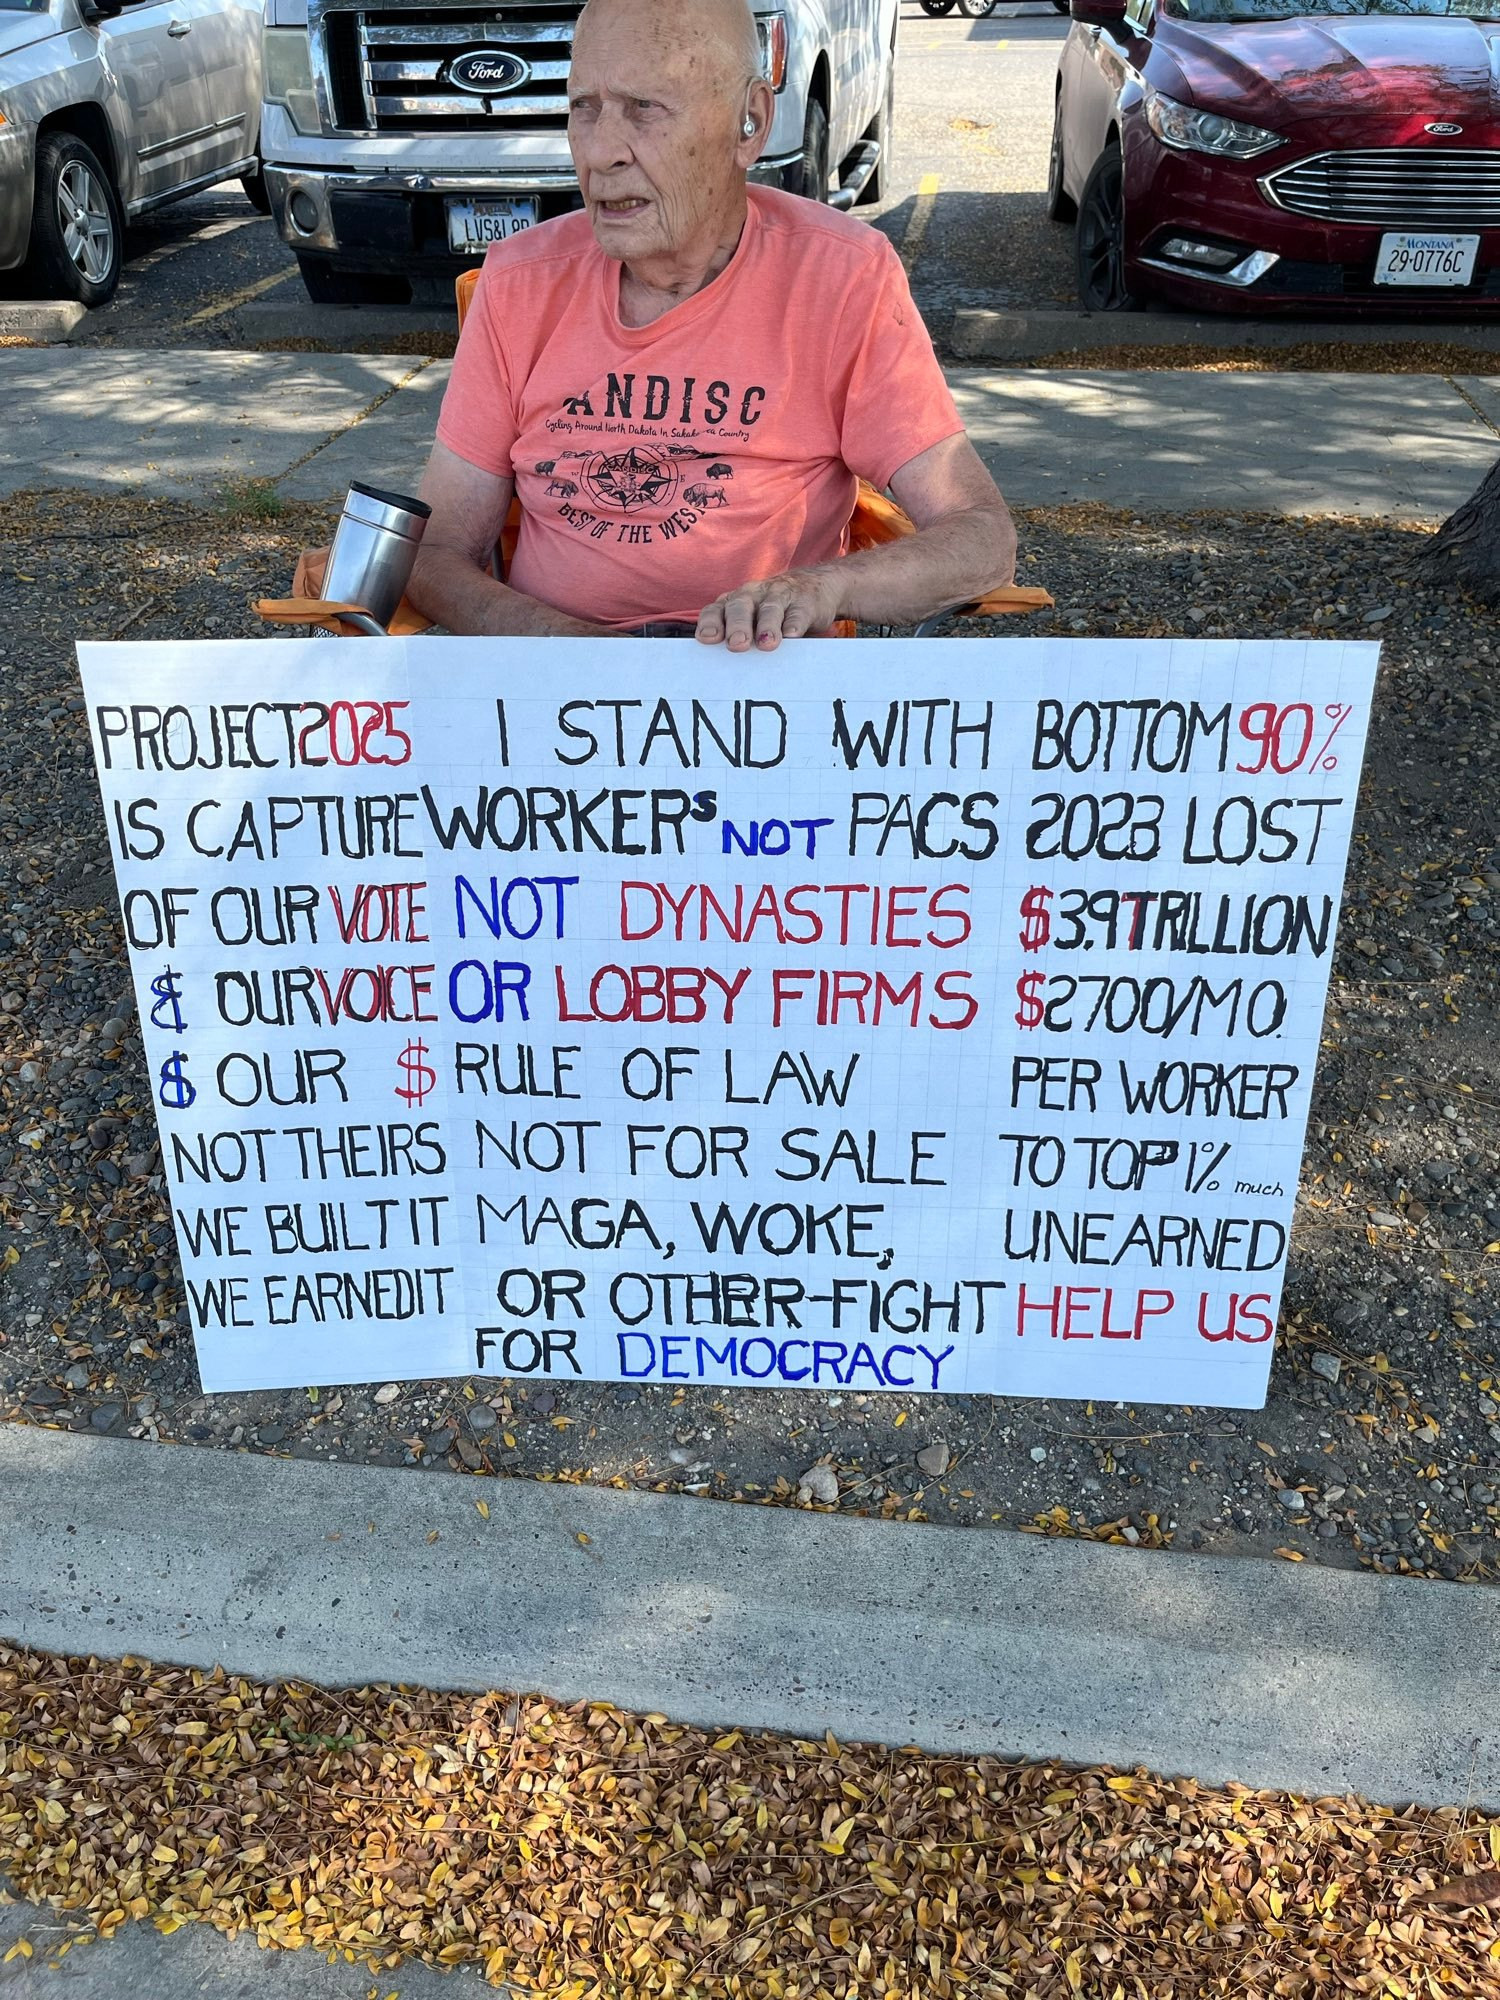 Ford
LVS&L
Ford
MONTANA
29-0776C
ANDISC
Cycling Around North Dakota In Country
BEST OF THE WEST
PROJECT2025
IS CAPTURE
OF OUR VOTE
& OUR VOICE
& OUR $
NOT THEIRS
WE BUILT IT
WE EARNED IT
I STAND WITH
WORKERS NOT PACS
NOT DYNASTIES
OR LOBBY FIRMS
RULE OF LAW
NOT FOR SALE
MAGA, WOKE,
OR OTHER-FIGHT
FOR DEMOCRACY
BOTTOM 90%
2023 LOST
$3.9TRILLION
$2700/MO.
PER WORKER
TO TOP 1% much
UNEARNED
HELP US